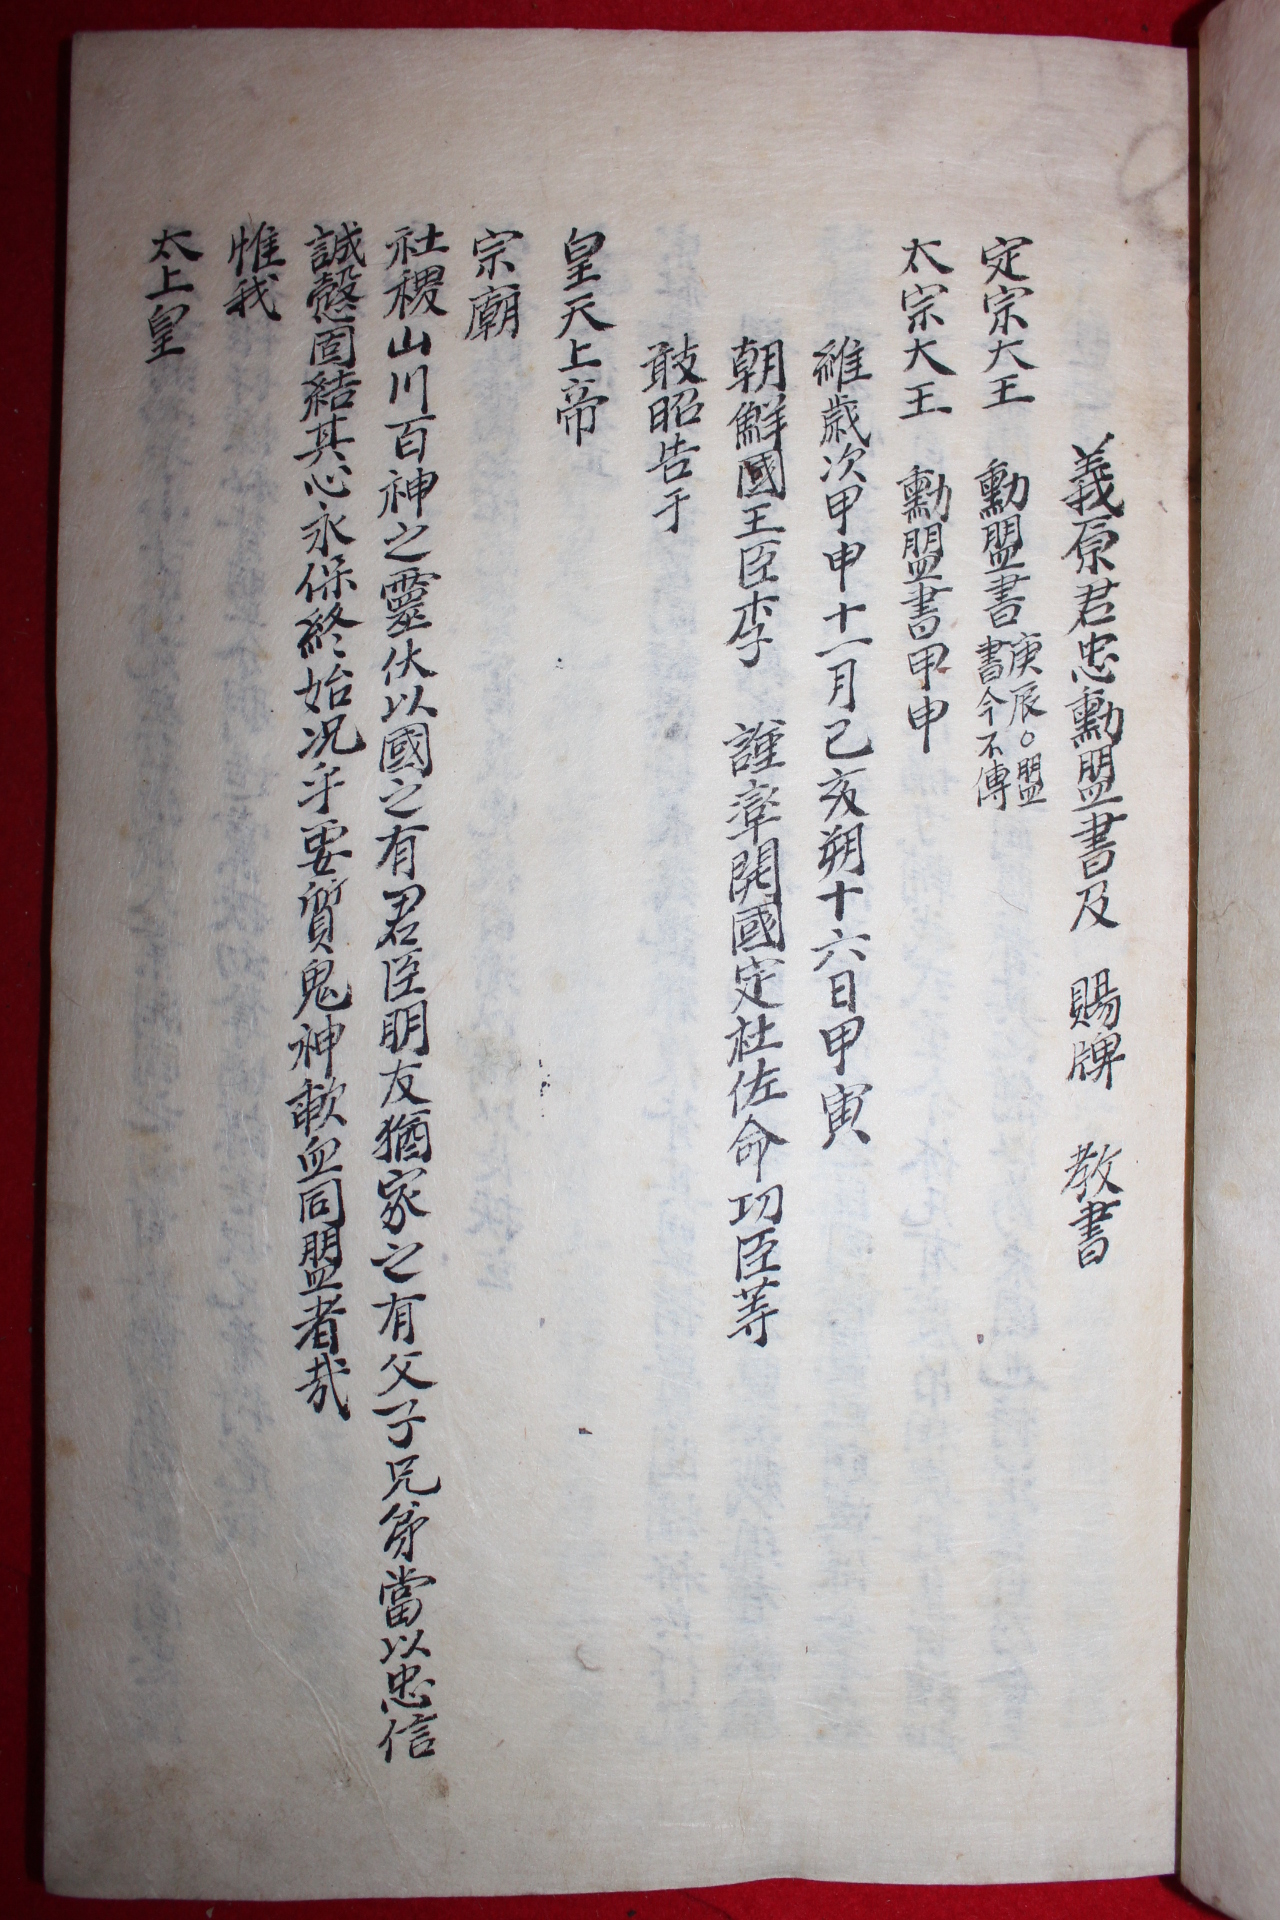 義原君忠勳盟書及 賜牌 教書
定宗大王 勳盟書 庚辰○盟書今不傳
太宗大王 勳盟書甲申
維歲次甲申十一月己亥朔十六日甲寅
朝鮮國王臣李 謹率開國定社佐命功臣等
敢昭告于
皇天上帝
宗廟
社稷山川百神之靈伏以國之有君臣朋友猶家之有父子兄弟當以忠信
誠慤固結其心永保終始况乎要質鬼神歃血同盟者哉
惟我
太上皇